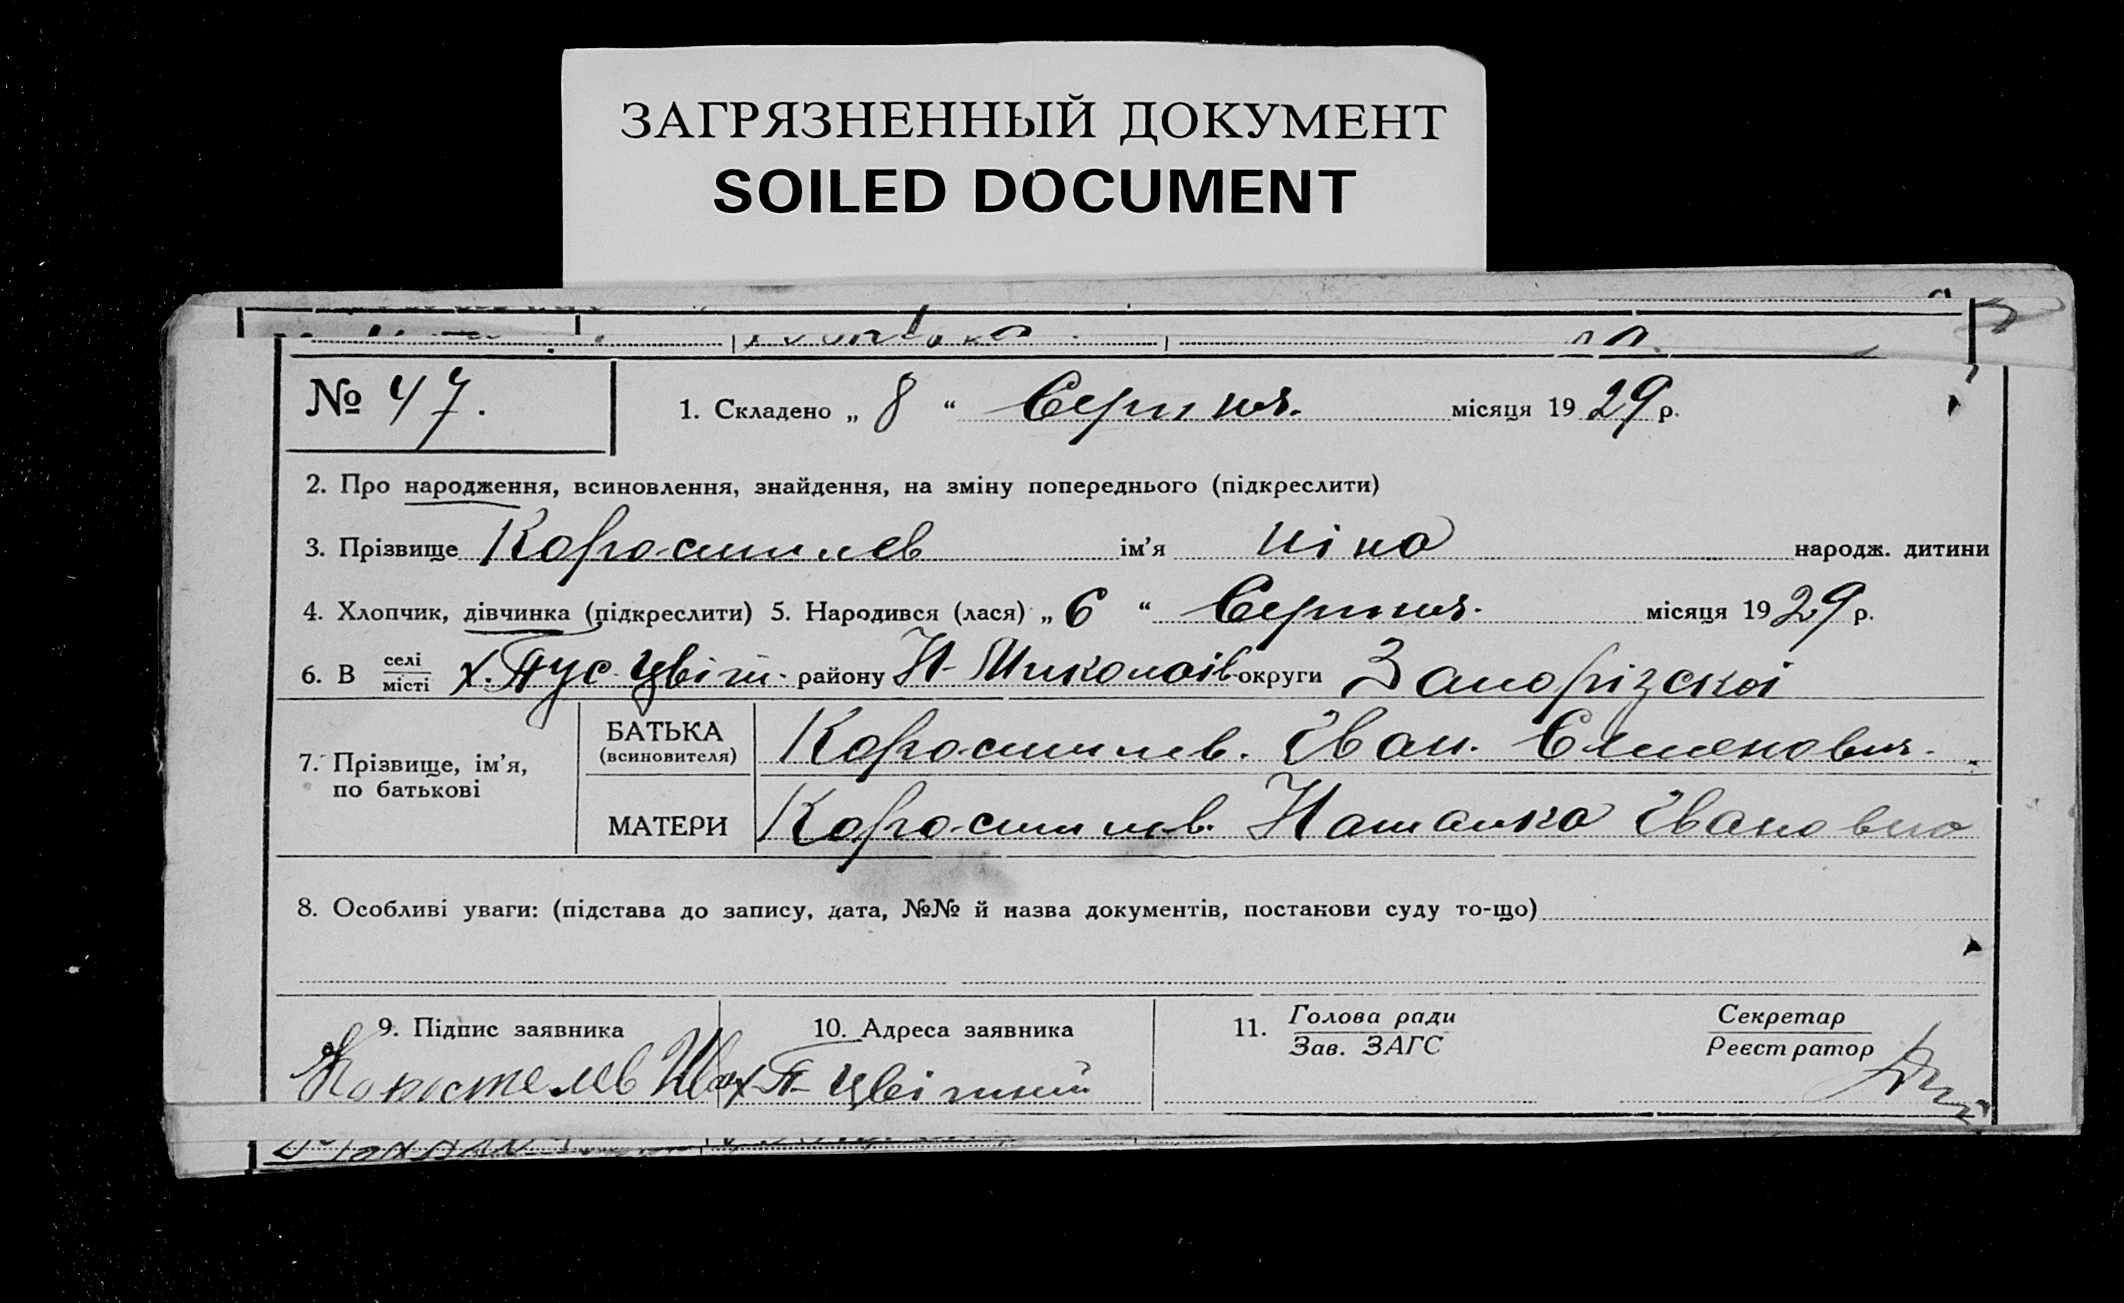 ЗАГРЯЗНЕННЫЙ ДОКУМЕНТ
SOILED DOCUMENT
№ 47.
1. Складено „ 8 “ Серпня. місяця 19 29 р.
2. Про народження, всиновлення, знайдення, на зміну попереднього (підкреслити)
3. Прізвище Коростилев ім’я Ніна народж. дитини
4. Хлопчик, дівчинка (підкреслити) 5. Народився (лася) „ 6 “ Серпня. місяця 19 29 р.
6. В селі/місті х. Пус-Цвіт. району Н-Миколаів округи Запорізскоі
7. Прізвище, ім’я, по батькові
БАТЬКА (всиновителя) Коростилев. Іван.
МАТЕРИ Коростилев. Наталка Івановна
8. Особливі уваги: (підстава до запису, дата, №№ й назва документів, постанови суду то-що)
9. Підпис заявника
Коростелев Ив
10. Адреса заявника
х П-Цвітний
11. Голова ради
Зав. ЗАГС
Секретар
Реєстратор